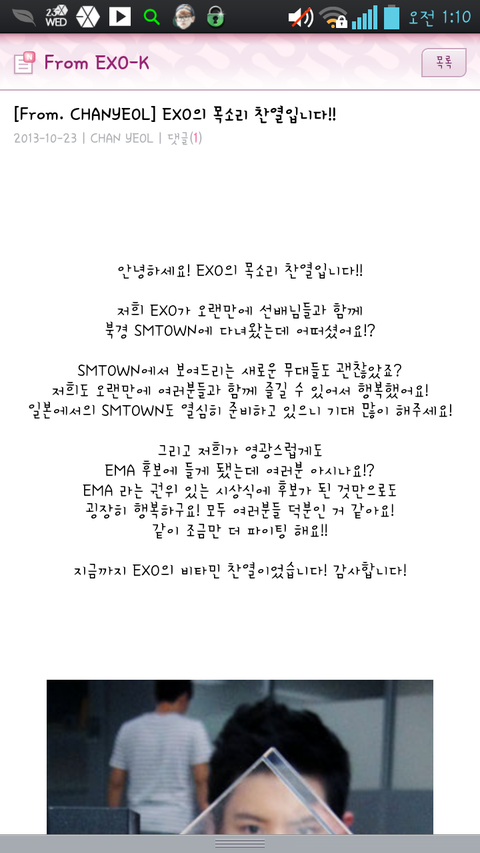 23 WED
오전 1:10
From EXO-K
목록
[From. CHANYEOL] EXO의 목소리 찬열입니다!!
2013-10-23 | CHAN YEOL | 댓글(1)
안녕하세요! EXO의 목소리 찬열입니다!!
저희 EXO가 오랜만에 선배님들과 함께
북경 SMTOWN에 다녀왔는데 어떠셨어요!?
SMTOWN에서 보여드리는 새로운 무대들도 괜찮았죠?
저희도 오랜만에 여러분들과 함께 즐길 수 있어서 행복했어요!
일본에서의 SMTOWN도 열심히 준비하고 있으니 기대 많이 해주세요!
그리고 저희가 영광스럽게도
EMA 후보에 들게 됐는데 여러분 아시나요!?
EMA 라는 권위 있는 시상식에 후보가 된 것만으로도
굉장히 행복하구요! 모두 여러분들 덕분인 거 같아요!
같이 조금만 더 파이팅 해요!!
지금까지 EXO의 비타민 찬열이었습니다! 감사합니다!